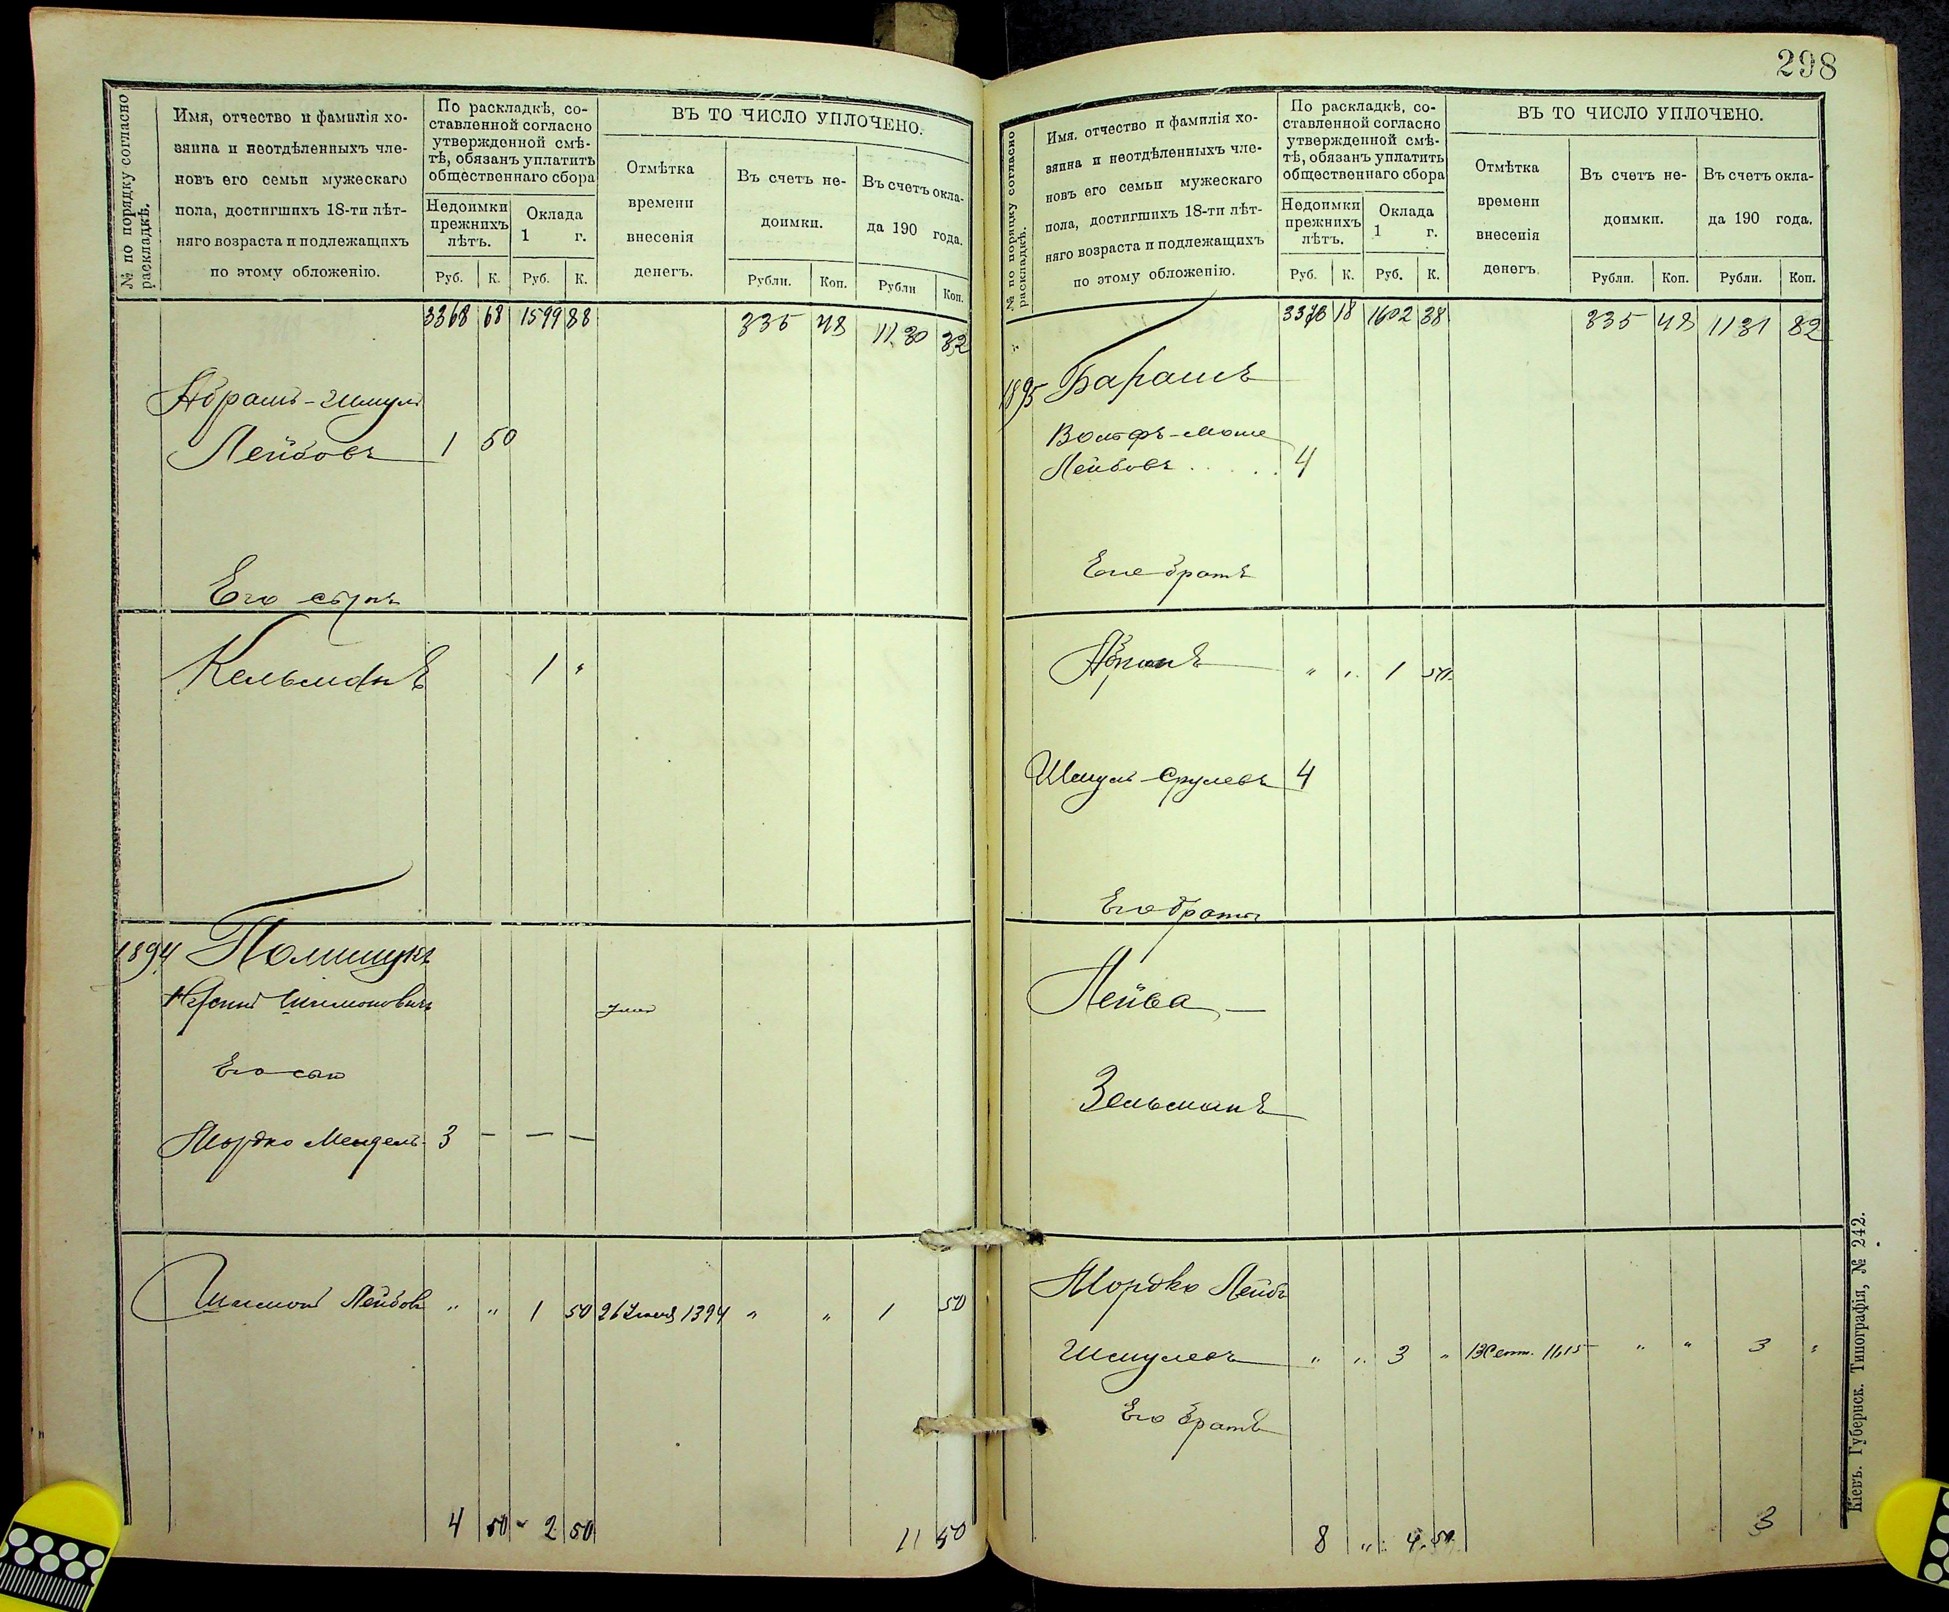 298
№ по порядку согласно
раскладкѣ.
Имя, отчество и фамилія хо-
зяина и неотдѣленныхъ чле-
новъ его семьи мужескаго
пола, достигшихъ 18-ти лѣт-
няго возраста и подлежащихъ
по этому обложенію.
По раскладкѣ, со-
ставленной согласно
утвержденной смѣ-
тѣ, обязанъ уплатить
общественнаго сбора
Недоимки
прежнихъ
лѣтъ.
Оклада
1 г.
Руб. К. Руб. К.
ВЪ ТО ЧИСЛО УПЛОЧЕНО.
Отмѣтка
времени
внесенія
денегъ.
Въ счетъ не-
доимки.
Въ счетъ окла-
да 190 года.
Рубли. Коп. Рубли Коп.
3368 68 1599 88 335 48 1130 32
Абрамъ-Шмуль
Лейбовъ 1 50
Его сынъ
Кельманъ 1 "
1894 Полищукъ
Шимоновичъ
Его сын
Мордко Мендель 3 — — —
Шимонъ Лейбовъ " " 1 50 26 1894 " " 1 50
4 50 2 50 11 50
№ по порядку согласно
раскладкѣ.
Имя. отчество и фамилія хо-
зяина и неотдѣленныхъ чле-
новъ его семьи мужескаго
пола, достигшихъ 18-ти лѣт-
няго возраста и подлежащихъ
по этому обложенію.
По раскладкѣ, со-
ставленной согласно
утвержденной смѣ-
тѣ, обязанъ уплатить
общественнаго сбора
Недоимки
прежнихъ
лѣтъ.
Оклада
1 г.
Руб. К. Руб. К.
ВЪ ТО ЧИСЛО УПЛОЧЕНО.
Отмѣтка
времени
внесенія
денегъ.
Въ счетъ не-
доимки.
Въ счетъ окла-
да 190 года.
Рубли. Коп. Рубли. Коп.
3373 18 1602 38 335 48 1131 82
1895 Барашъ
Вольфъ-Моше
Лейбовъ . . . . . 4
Его братъ
" " 1 50
Шмуль Срулевъ 4
Его братья
Лейба
Зельманъ
Мордко Лейб
Шмулевъ " " 3 " 13 Сент. " " 3 "
Его братъ
8 " 4 50 3
Кіевъ. Губернск. Типографія, № 242.